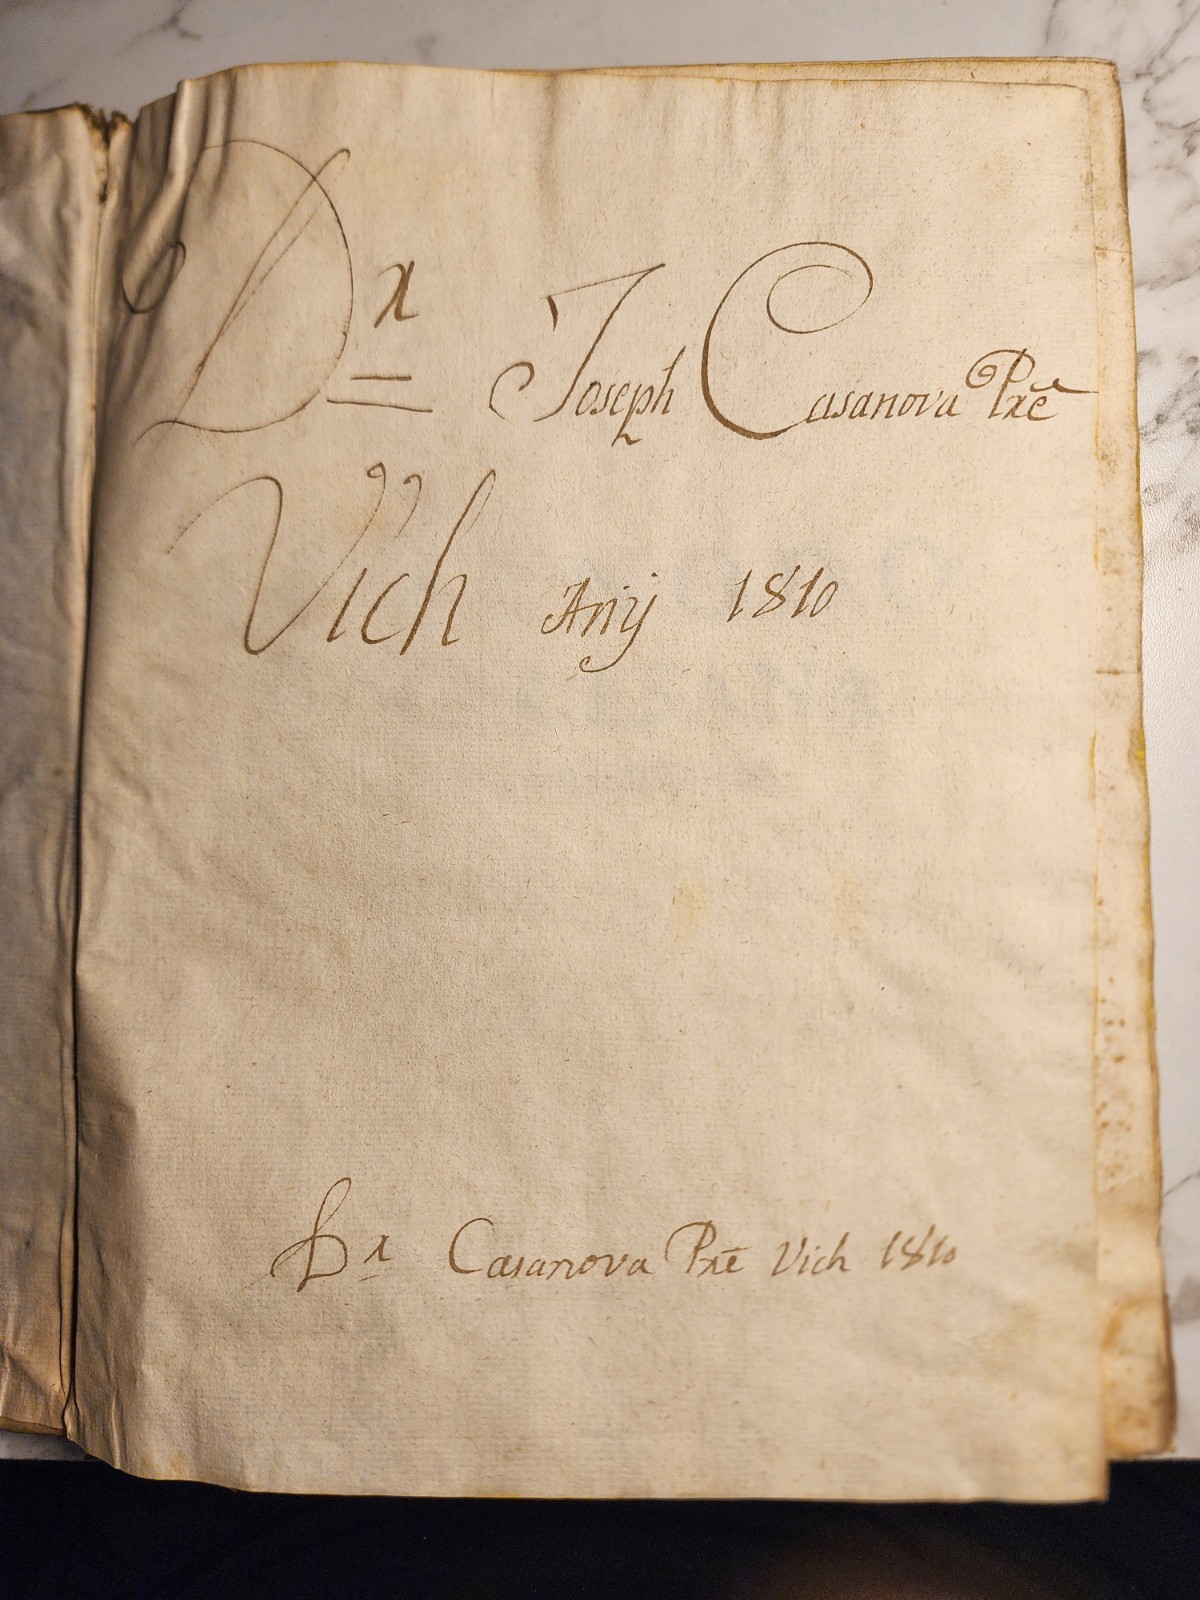 Dr Joseph Casanova Pre
Vich Any 1810
Dr Casanova Pre Vich 1810